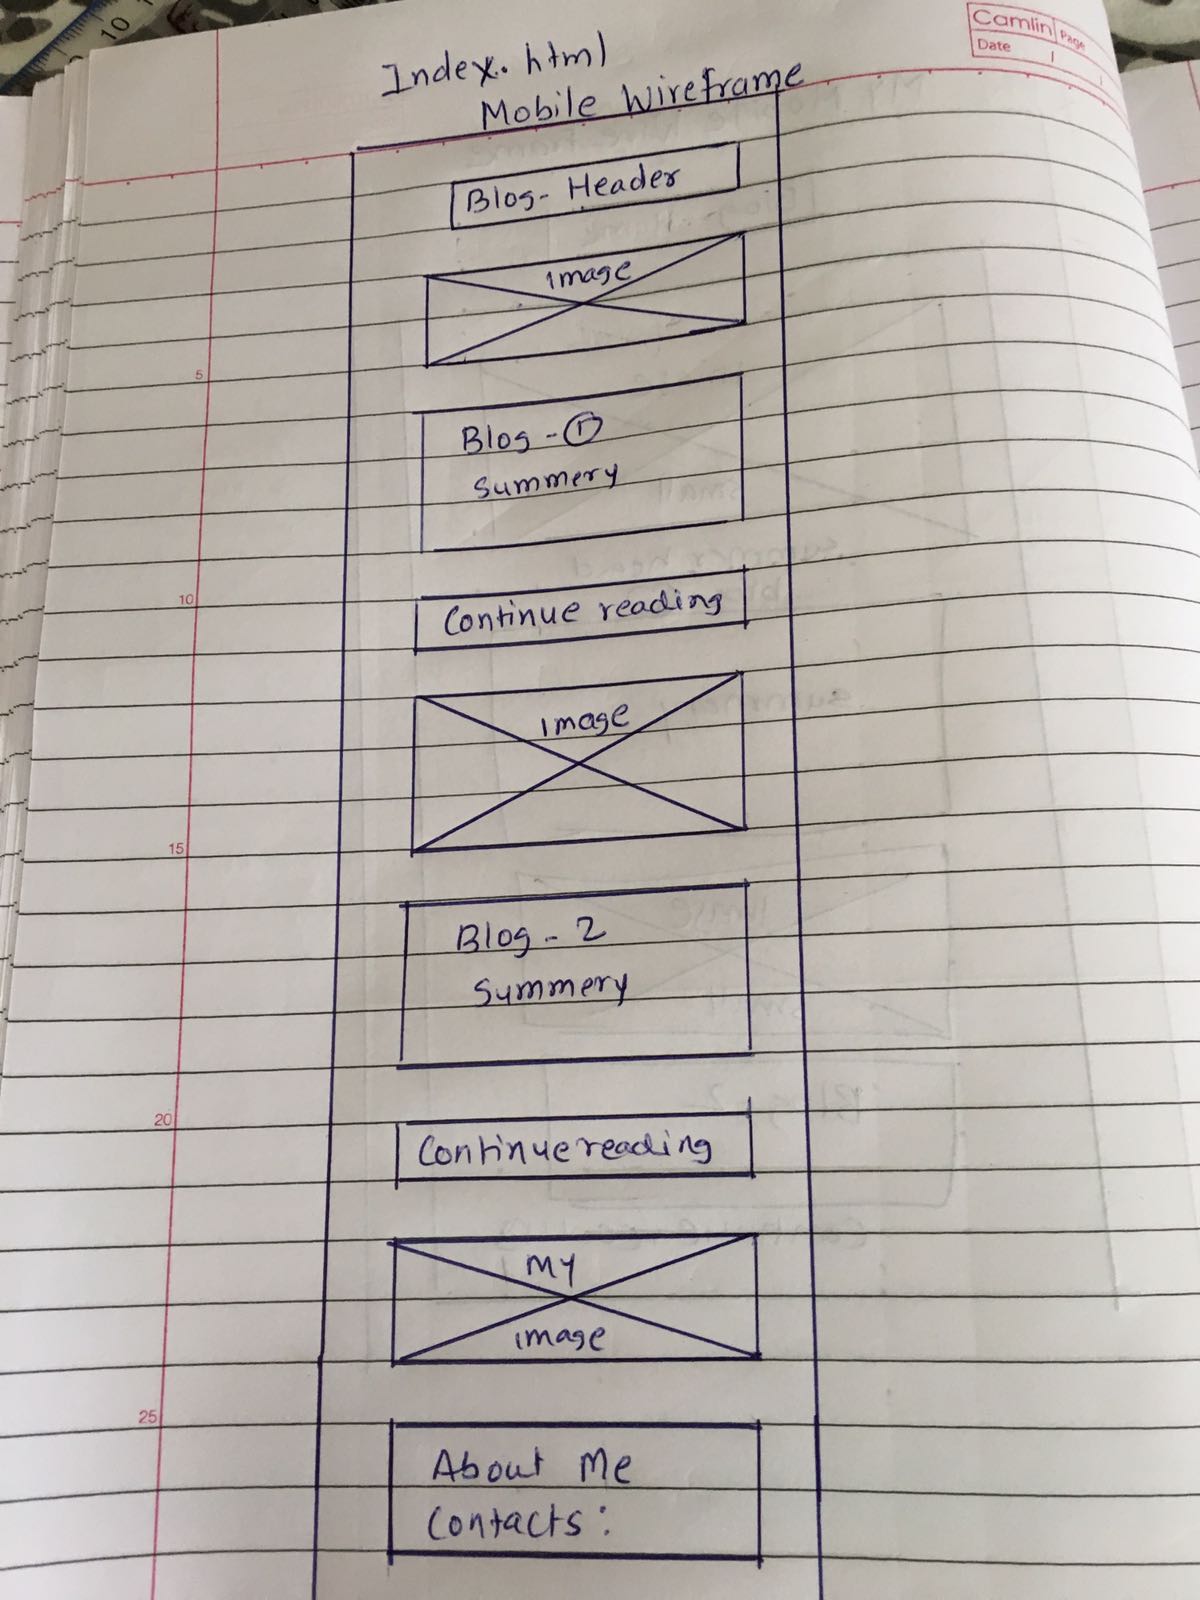 10
Camlin Page
Date
Index.html
Mobile Wireframe
Blog- Header
image
5
Blog - ①
summery
10
Continue reading
image
15
Blog - 2
summery
20
Continue reading
MY
image
25
About Me
Contacts: